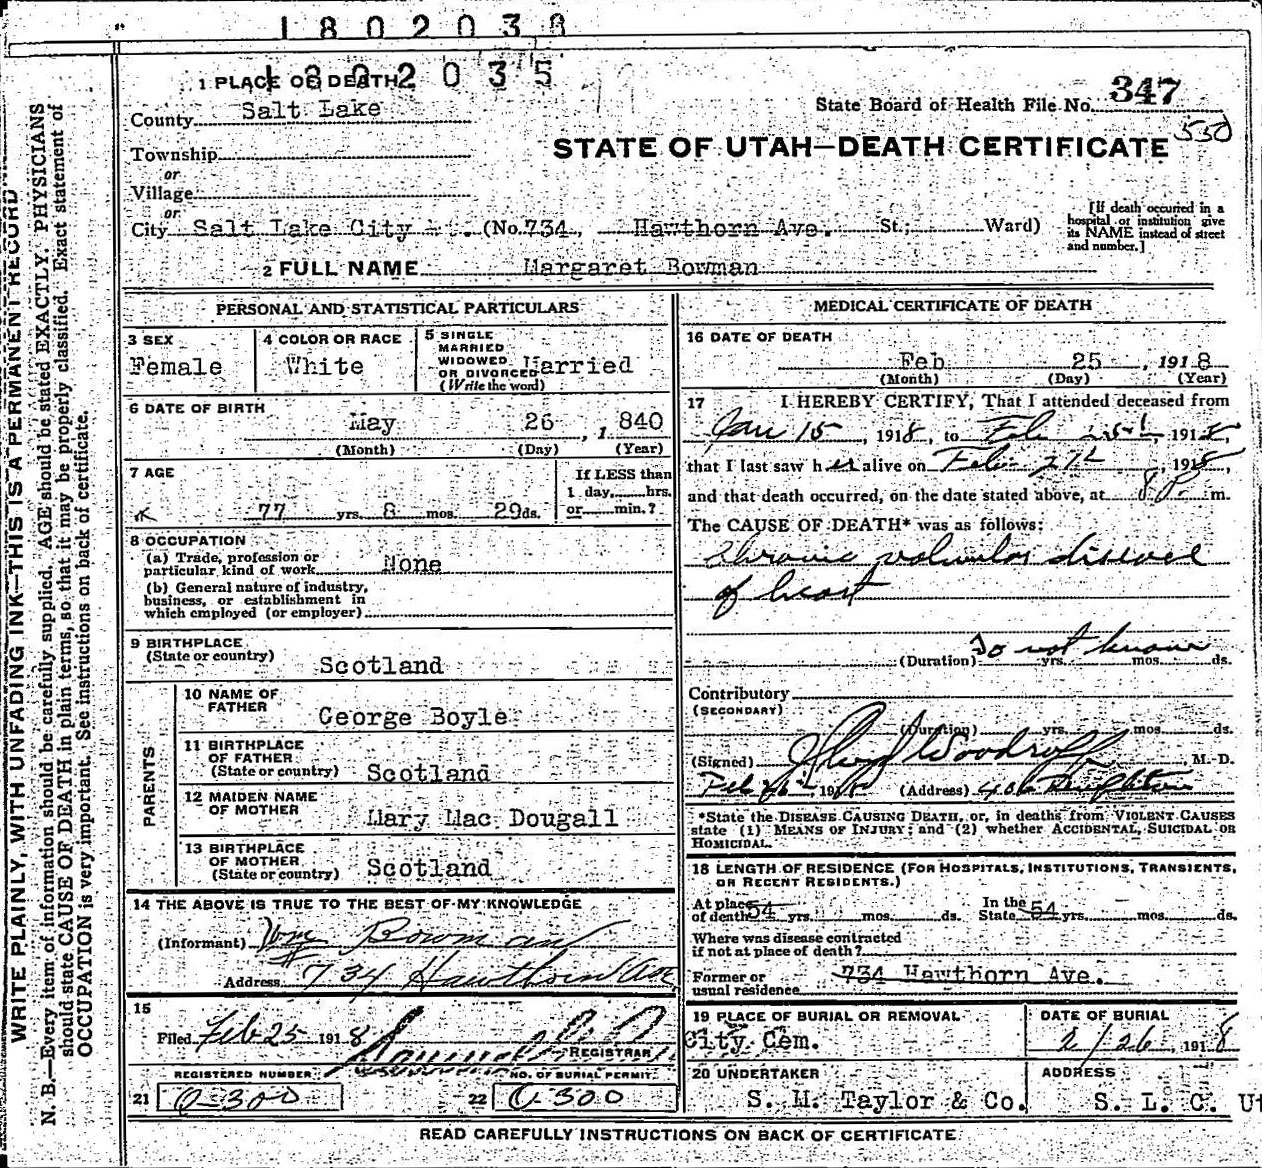 1802038
1802035
1 PLACE OF DEATH
County Salt Lake
Township
or
Village
or
City Salt Lake City (No. 734, Hawthorn Ave. St.; Ward)
State Board of Health File No. 347
550
STATE OF UTAH—DEATH CERTIFICATE
[If death occurred in a
hospital or institution give
its NAME instead of street
and number.]
2 FULL NAME Margaret Bowman
PERSONAL AND STATISTICAL PARTICULARS
3 SEX
Female
4 COLOR OR RACE
White
5 SINGLE
MARRIED
WIDOWED
OR DIVORCED Married
(Write the word)
6 DATE OF BIRTH
May 26, 1840
(Month) (Day) (Year)
7 AGE
77 yrs. 8 mos. 29 ds.
If LESS than
1 day, hrs.
or min.?
8 OCCUPATION
(a) Trade, profession or
particular kind of work None
(b) General nature of industry,
business, or establishment in
which employed (or employer)
9 BIRTHPLACE
(State or country) Scotland
PARENTS
10 NAME OF
FATHER George Boyle
11 BIRTHPLACE
OF FATHER
(State or country) Scotland
12 MAIDEN NAME
OF MOTHER Mary Mac Dougall
13 BIRTHPLACE
OF MOTHER
(State or country) Scotland
14 THE ABOVE IS TRUE TO THE BEST OF MY KNOWLEDGE
(Informant) Wm Bowman
Address # 734 Hawthorn Ave
15
Filed Feb 25 1918
REGISTRAR
REGISTERED NUMBER
21 O-300
NO. OF BURIAL PERMIT
22 O 300
MEDICAL CERTIFICATE OF DEATH
16 DATE OF DEATH
Feb 25, 1918
(Month) (Day) (Year)
17 I HEREBY CERTIFY, That I attended deceased from
Jan 15, 1918, to Feb 1918,
that I last saw her alive on Feb 1918,
and that death occurred, on the date stated above, at 8 P. m.
The CAUSE OF DEATH* was as follows:
Chronic valvular disease
of heart
(Duration) Do not know yrs. mos. ds.
Contributory
(SECONDARY)
(Duration) yrs. mos. ds.
(Signed) Woodruff, M. D.
Feb 26 1918 (Address) 406
*State the DISEASE CAUSING DEATH, or, in deaths from VIOLENT CAUSES
state (1) MEANS OF INJURY; and (2) whether ACCIDENTAL, SUICIDAL OR
HOMICIDAL.
18 LENGTH OF RESIDENCE (FOR HOSPITALS, INSTITUTIONS, TRANSIENTS,
OR RECENT RESIDENTS.)
At place
of death 54 yrs. mos. ds. In the State 54 yrs. mos. ds.
Where was disease contracted
if not at place of death?
Former or
usual residence 734 Hawthorn Ave.
19 PLACE OF BURIAL OR REMOVAL
City Cem.
DATE OF BURIAL
2/26 1918
20 UNDERTAKER
S. M. Taylor & Co.
ADDRESS
S. L. C. Ut
READ CAREFULLY INSTRUCTIONS ON BACK OF CERTIFICATE
WRITE PLAINLY, WITH UNFADING INK—THIS IS A PERMANENT RECORD
N. B.—Every item of information should be carefully supplied. AGE should be stated EXACTLY. PHYSICIANS
should state CAUSE OF DEATH in plain terms, so that it may be properly classified. Exact statement of
OCCUPATION is very important. See instructions on back of certificate.